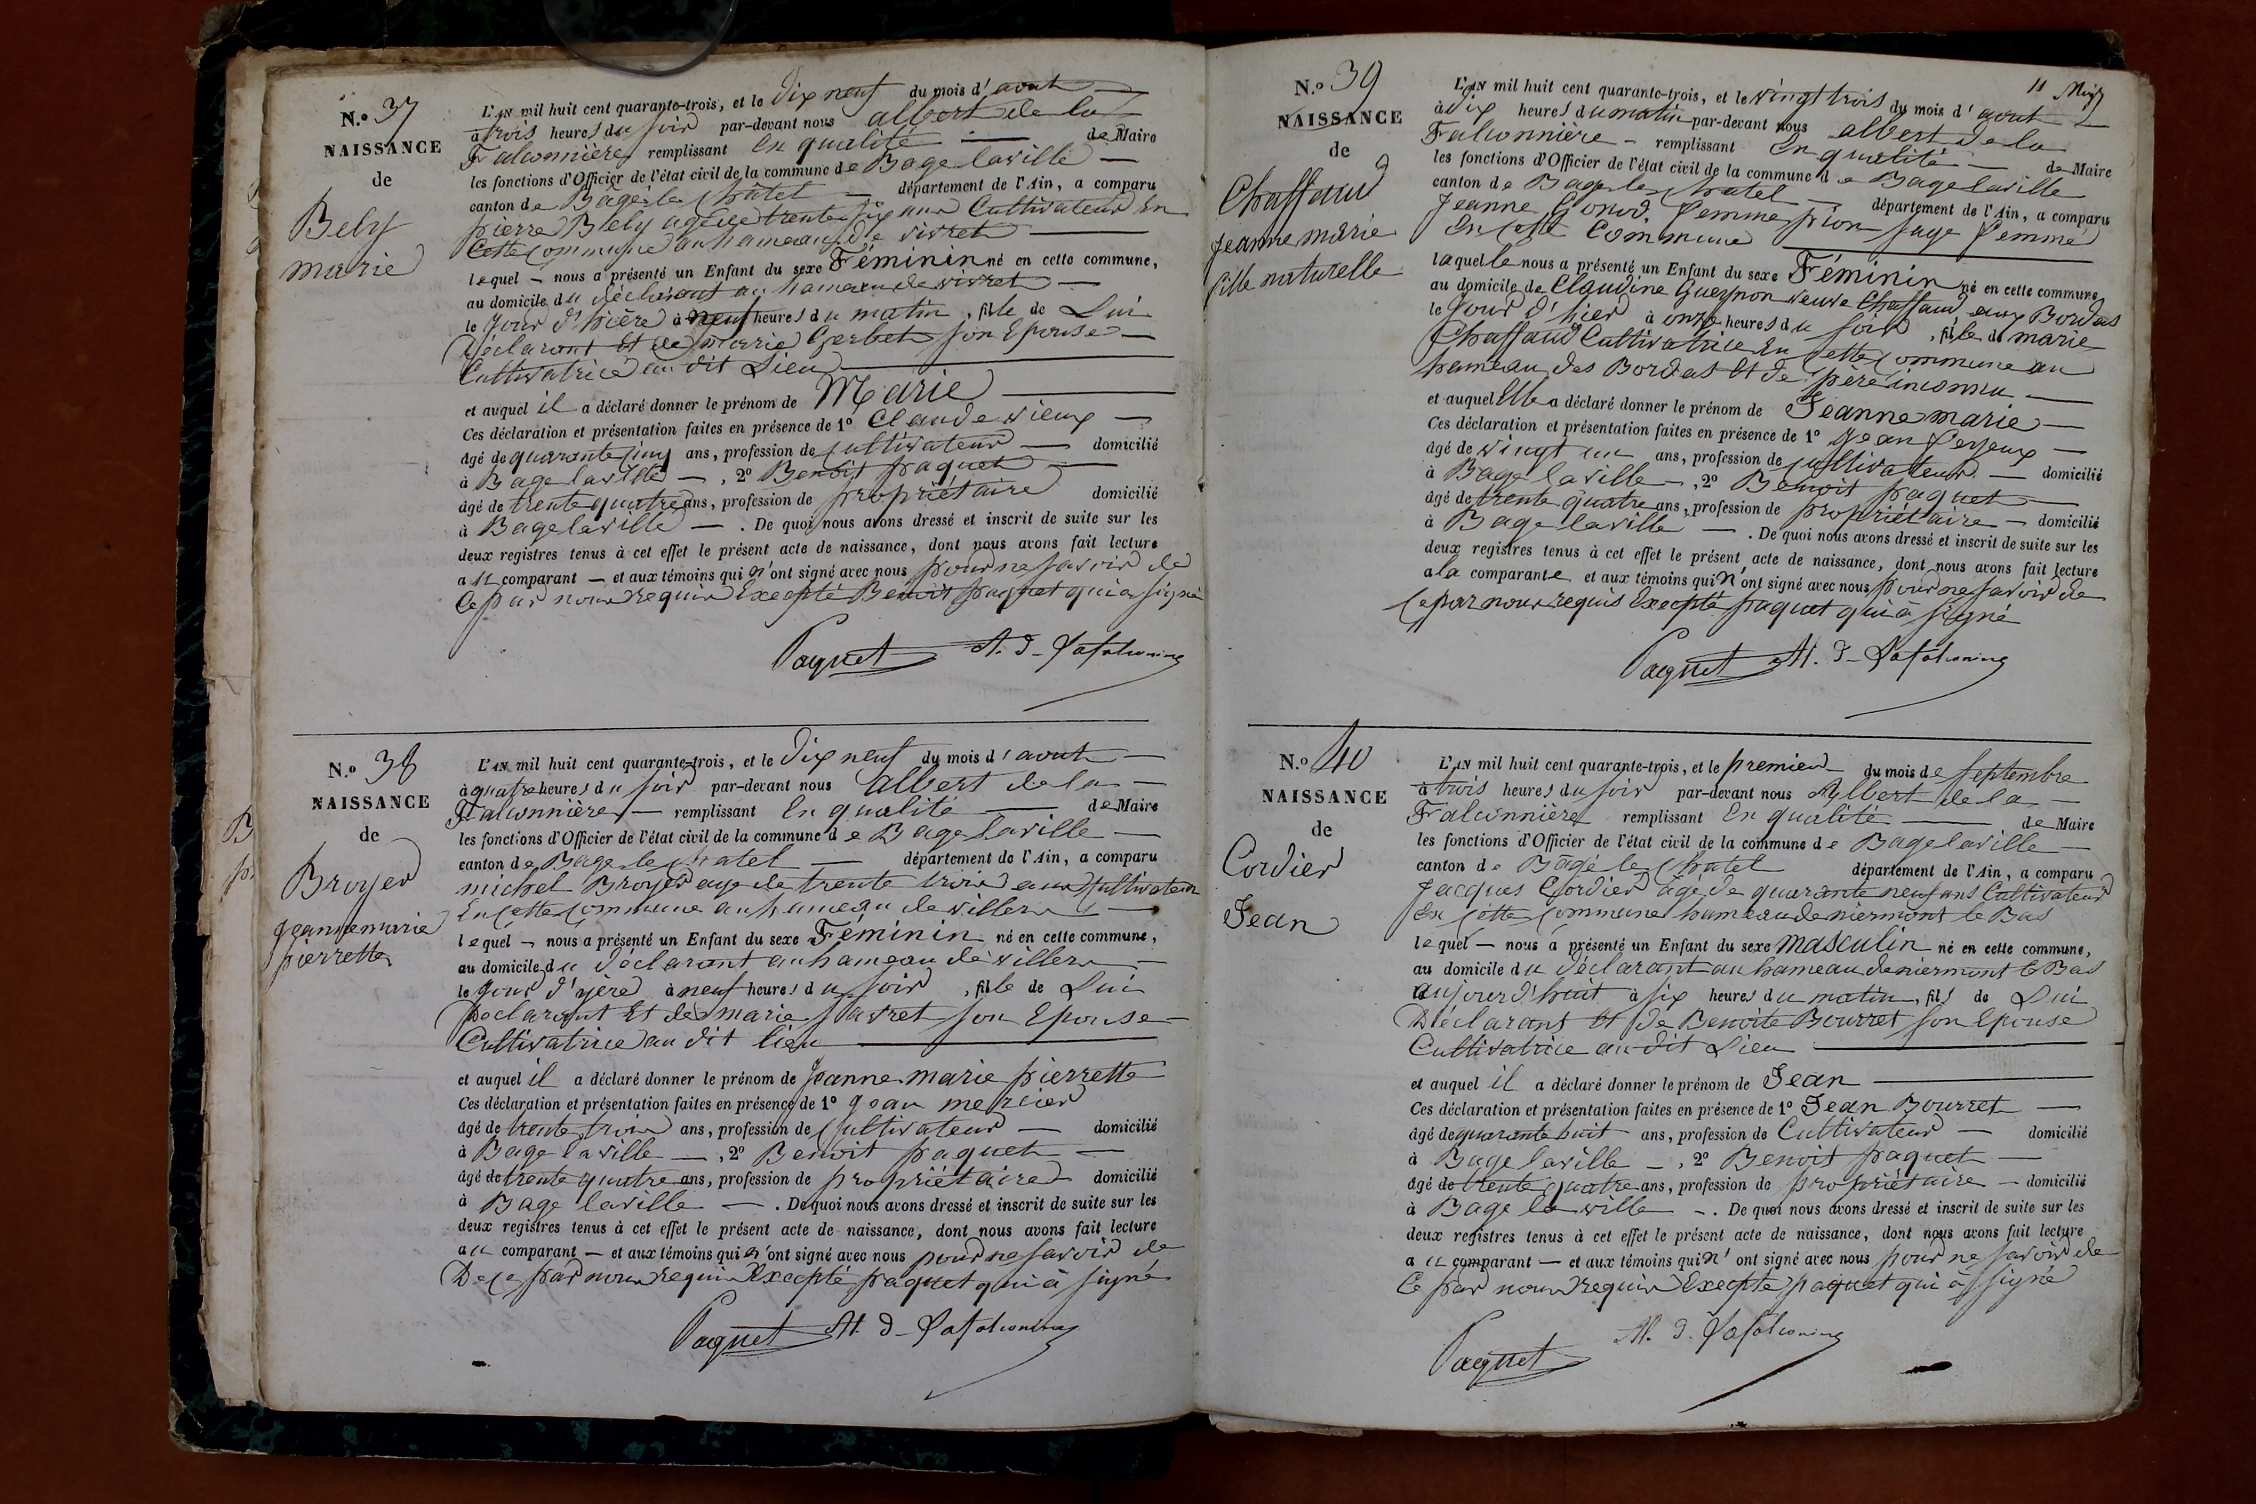 N.o 37
NAISSANCE
de
Bely
marie
L'AN mil huit cent quarante-trois, et le Dix neuf du mois d'aout
à trois heures du soir par-devant nous albert de la
Falconnière remplissant En qualité de Maire
les fonctions d'Officier de l'état civil de la commune de Bage laville
canton de Bagé le Chatel département de l'Ain, a comparu
pierre Bely agé de trente six ans Cultivateur En
Cette Commune au hameau de vivret
lequel nous a présenté un Enfant du sexe Féminin né en cette commune,
au domicile du déclarant au hameau de vivret
le Jour d'hière à neuf heures du matin, fille de Lui
Déclarant Et de Marie Gerbet son Epouse
Cultivatrice au dit Lieu
et auquel il a déclaré donner le prénom de Marie
Ces déclaration et présentation faites en présence de 1° Claude vieux
âgé de quarante cinq ans, profession de Cultivateur domicilié
à Bage laville, 2° Benoit paquet
âgé de trente quatre ans, profession de propriétaire domicilié
à Bage laville. De quoi nous avons dressé et inscrit de suite sur les
deux registres tenus à cet effet le présent acte de naissance, dont nous avons fait lecture
au comparant et aux témoins qui n'ont signé avec nous pour ne savoir de
Ce par nous requis Excepté Benoit paquet qui a signé
Paquet A. D. Lafalconnière
N.o 38
NAISSANCE
de
Broyer
jeanne marie
pierrette
L'AN mil huit cent quarante-trois, et le Dix neuf du mois d'aout
à quatre heures du soir par-devant nous albert de la
Falconnière remplissant En qualité de Maire
les fonctions d'Officier de l'état civil de la commune de Bage laville
canton de Bage le chatel département de l'Ain, a comparu
michel Broyer age de trente trois ans Cultivateur
En Cette Commune au hameau de villers
lequel nous a présenté un Enfant du sexe Féminin né en cette commune,
au domicile du déclarant au hameau de villers
le Jour d'yère à neuf heures du soir, fille de Lui
Declarant Et de marie favret son Epouse
Cultivatrice au dit lieu
et auquel il a déclaré donner le prénom de Jeanne marie pierrette
Ces déclaration et présentation faites en présence de 1° jean mercier
âgé de trente trois ans, profession de Cultivateur domicilié
à Bage laville, 2° Benoit paquet
âgé de trente quatre ans, profession de propriétaire domicilié
à Bage laville. De quoi nous avons dressé et inscrit de suite sur les
deux registres tenus à cet effet le présent acte de naissance, dont nous avons fait lecture
au comparant et aux témoins qui n'ont signé avec nous pour ne savoir de
De Ce par nous requis Excepté paquet qui à signé
Paquet Al. D. Lafalconnière
11
N.o 39
NAISSANCE
de
Chaffaud
jeanne marie
fille naturelle
L'AN mil huit cent quarante-trois, et le vingt trois du mois d'aout
à dix heures du matin par-devant nous albert de la
Falconnière remplissant En qualité de Maire
les fonctions d'Officier de l'état civil de la commune de Bage laville
canton de Bage le chatel département de l'Ain, a comparu
Jeanne Gonod, femme pion sage femme
En Cette Commune
laquelle nous a présenté un Enfant du sexe Féminin né en cette commune
au domicile de Claudine Guernon veuve Chaffaud aux Bordes
le Jour d'hier à onze heures du soir, fille de marie
Chaffaud Cultivatrice En Cette Commune au
hameau des Bordes Et de père inconnu
et auquel Elle a déclaré donner le prénom de Jeanne marie
Ces déclaration et présentation faites en présence de 1° Jean
âgé de vingt un ans, profession de Cultivateur domicilié
à Bage laville, 2° Benoit paquet
âgé de trente quatre ans, profession de propriétaire domicilié
à Bage laville. De quoi nous avons dressé et inscrit de suite sur les
deux registres tenus à cet effet le présent acte de naissance, dont nous avons fait lecture
a la comparante et aux témoins qui n'ont signé avec nous pour ne savoir de
Ce par nous requis Excepté paquet qui à signé
Paquet Al. D. Lafalconnière
N.o 40
NAISSANCE
de
Cordier
Jean
L'AN mil huit cent quarante-trois, et le premier du mois de Septembre
à trois heures du soir par-devant nous Albert de la
Falconnière remplissant En qualité de Maire
les fonctions d'Officier de l'état civil de la commune de Bage laville
canton de Bagé le Chatel département de l'Ain, a comparu
Jacques Cordier âge de quarante neuf ans Cultivateur
En Cette Commune hameau de niermont le Bas
lequel nous a présenté un Enfant du sexe masculin né en cette commune,
au domicile du déclarant au hameau de niermont le Bas
aujourd'huit à six heures du matin, fils de Lui
Déclarant Et de Benoite Bourret son Epouse
Cultivatrice au dit Lieu
et auquel il a déclaré donner le prénom de Jean
Ces déclaration et présentation faites en présence de 1° Jean Bourret
âgé de quarante huit ans, profession de Cultivateur domicilié
à Bage laville, 2° Benoit paquet
âgé de trente quatre ans, profession de propriétaire domicilié
à Bage la ville. De quoi nous avons dressé et inscrit de suite sur les
deux registres tenus à cet effet le présent acte de naissance, dont nous avons fait lecture
au comparant et aux témoins qui n'ont signé avec nous pour ne savoir de
Ce par nous requis Excepté paquet qui à signé
Paquet Al. D. Lafalconnière